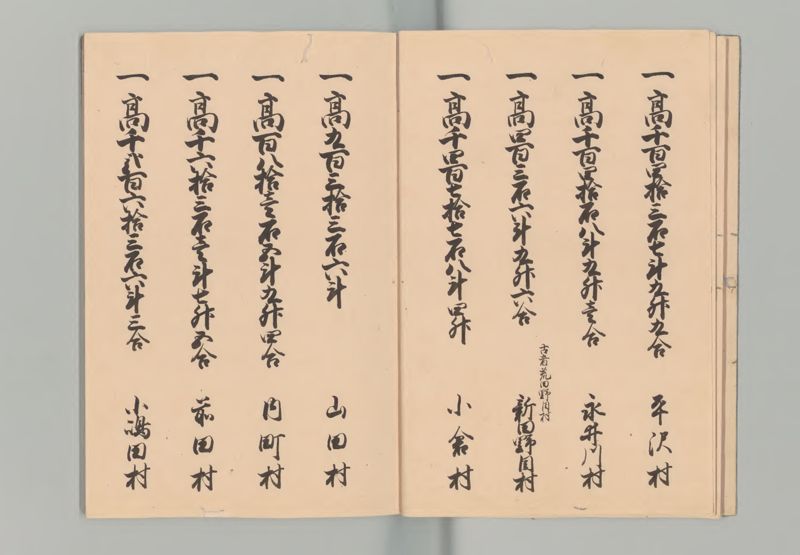 一高千百四拾三石七斗九升九合 平沢村
一高千百四拾石八斗九升壱合 永井川村
一高四百三石六斗九升六合 新田野目村
古者荒田野目村
一高千四百七拾七石八斗四升 小倉村
一高九百三拾三石六斗 山田村
一高百八拾壱石五斗九升四合 円町村
一高千六拾三石壱斗七升五合 前田村
一高千弐百六拾三石六斗三合 小嶋田村